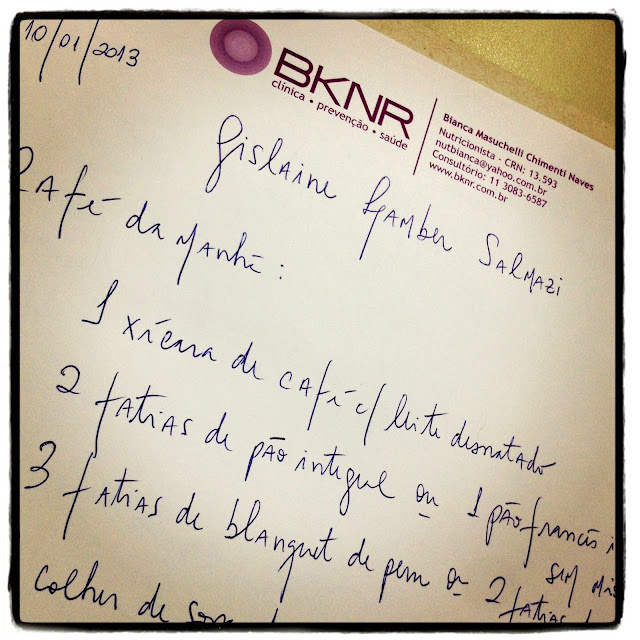 10/01/2013
BKNR
clínica • prevenção • saúde
Bianca Masuchelli Chimenti Naves
Nutricionista - CRN: 13.593
nutbianca@yahoo.com.br
Consultório: 11 3083-6587
www.bknr.com.br
Gislaine Gamber Salmazi
Café da manhã:
1 xícara de café c/ leite desnatado
2 fatias de pão integral ou 1 pão francês
sem
3 fatias de blanquet de peru ou 2 fatias
colher de